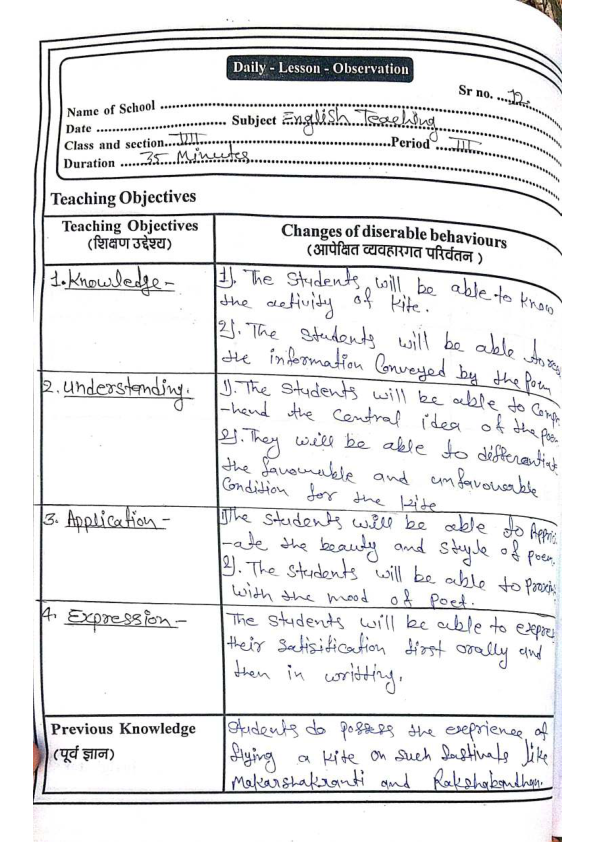 Daily - Lesson - Observation
Sr no. ...12.
Name of School
Date ........ Subject English Teaching
Class and section....VIII........Period ...III
Duration ....35 Minutes
Teaching Objectives
Teaching Objectives
(शिक्षण उद्देश्य)
Changes of diserable behaviours
(आपेक्षित व्यवहारगत परिर्वतन )
1. Knowledge -
1). The Students will be able to know
the activity of kite.
2). The students will be able to
the information Conveyed by the Poem
2. Understanding.
1). The Students will be able to Comp
-hend the central idea of the poe
2). They will be able to differentiate
the favourable and unfavourable
Condition for the kite
3. Application -
1) The students will be able to Appri
-ate the beauty and style of poem.
2). The Students will be able to
with the mood of Poet.
4. Expression -
The students will be able to expres
their Satisitication first orally and
then in writting.
Previous Knowledge
(पूर्व ज्ञान)
Students do possess the exeprience of
flying a kite on such fastivals like
Makarshakranti and Rakshabandhan.